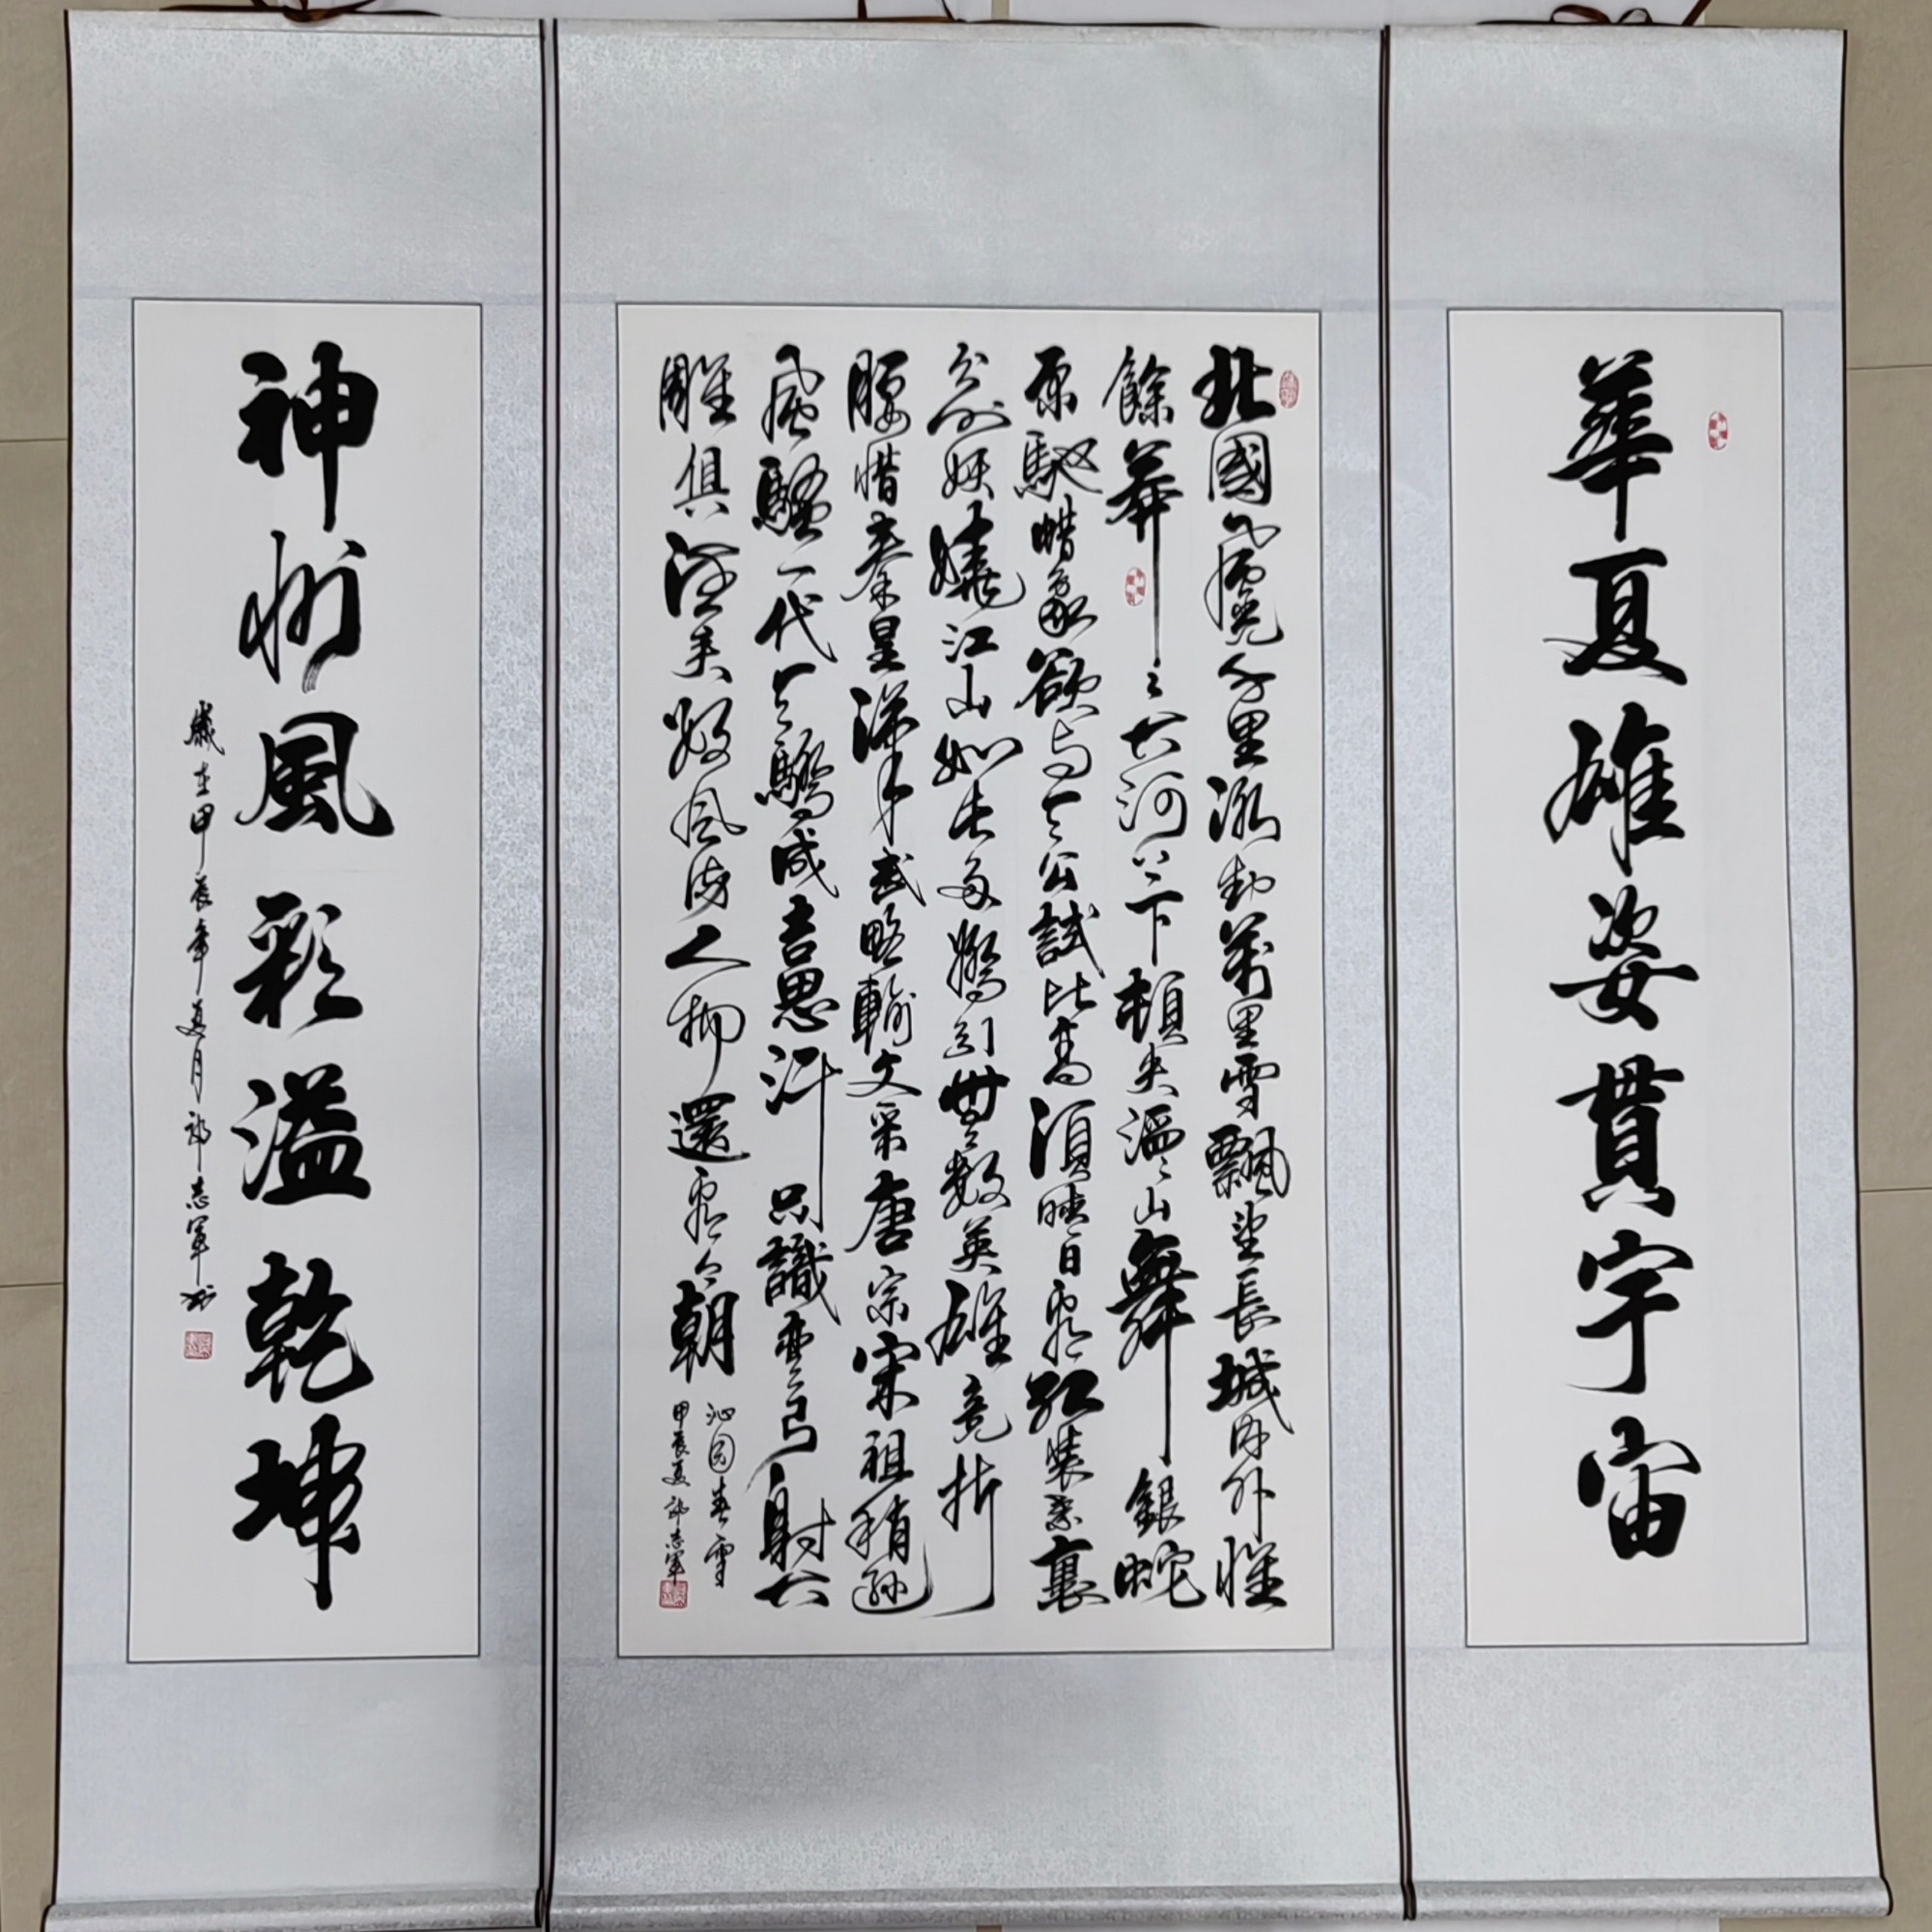 華夏雄姿貫宇宙
北國風光千里冰封萬里雪飄望長城內外惟
餘莽々大河上下頓失滔々山舞銀蛇
原馳蜡象欲與天公試比高須晴日看紅裝素裹
分外妖嬈江山如此多嬌引無數英雄竞折
腰惜秦皇漢武略輸文采唐宗宋祖稍遜
風騷一代天驕成吉思汗只識彎弓射大
雕俱往矣數風流人物還看今朝
沁园春雪
甲辰夏郭志軍
神州風彩溢乾坤
歲在甲辰年夏月郭志軍书